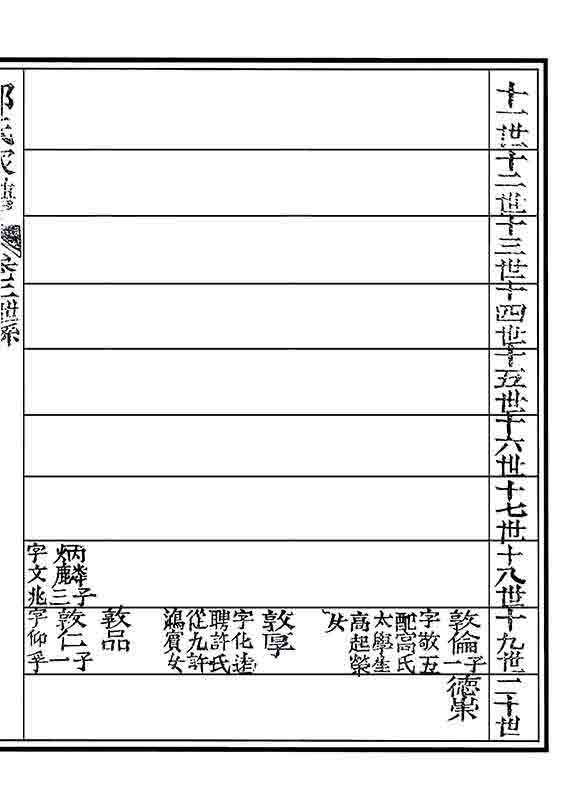 十一世
十二世
十三世
十四世
十五世
十六世
十七世
十八世
十九世
二十世
敦倫一子
字敬五
配高氏
太學生
高起榮
女
德崇
敦厚
字化逵
聘許氏
從九許
鴻賓女
敦品
炳麟三子
字文兆
敦仁一子
字仰孚
氏家
卷三世系